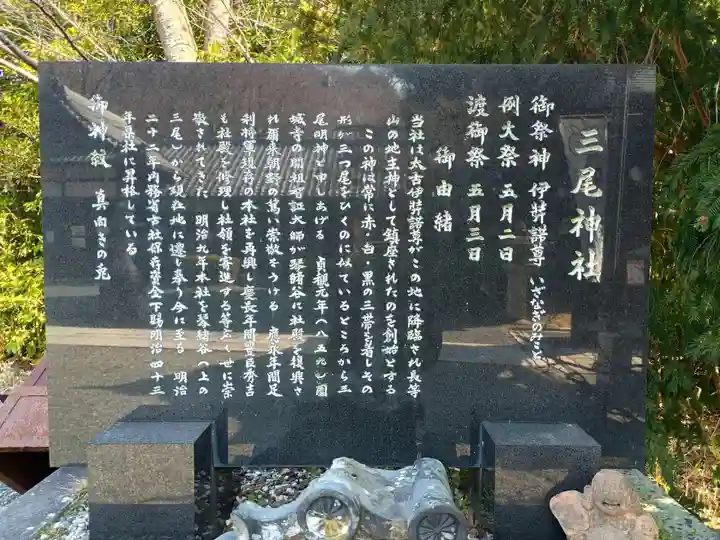 三尾神社
御祭神 伊弉諾尊 いざなぎのみこと
例大祭 五月二日
渡御祭 五月三日
御由緒
当社は太古伊弉諾尊がこの地に降臨され長等
山の地主神として鎮座されたのを創始とする
この神は常に赤・白・黒の三帯を着しその
形が三つ尾をひくのに似ているところから三
尾明神と申しあげる 貞観元年(八五九)園
城寺の開祖智証大師が琴緒谷に社殿を復興さ
れ爾来朝野の篤い崇敬をうける 應永年間足
利将軍現存の本社を再興し慶長年間豊臣秀吉
も社殿を修理し社領を寄進する等延々世に崇
敬されてきた 明治九年本社を琴緒谷(上の
三尾)から現社地に遷し奉り今に至る 明治
二十二年内務省古社保存資金下賜明治四十三
年県社に昇格している
御神紋 真向きの兎